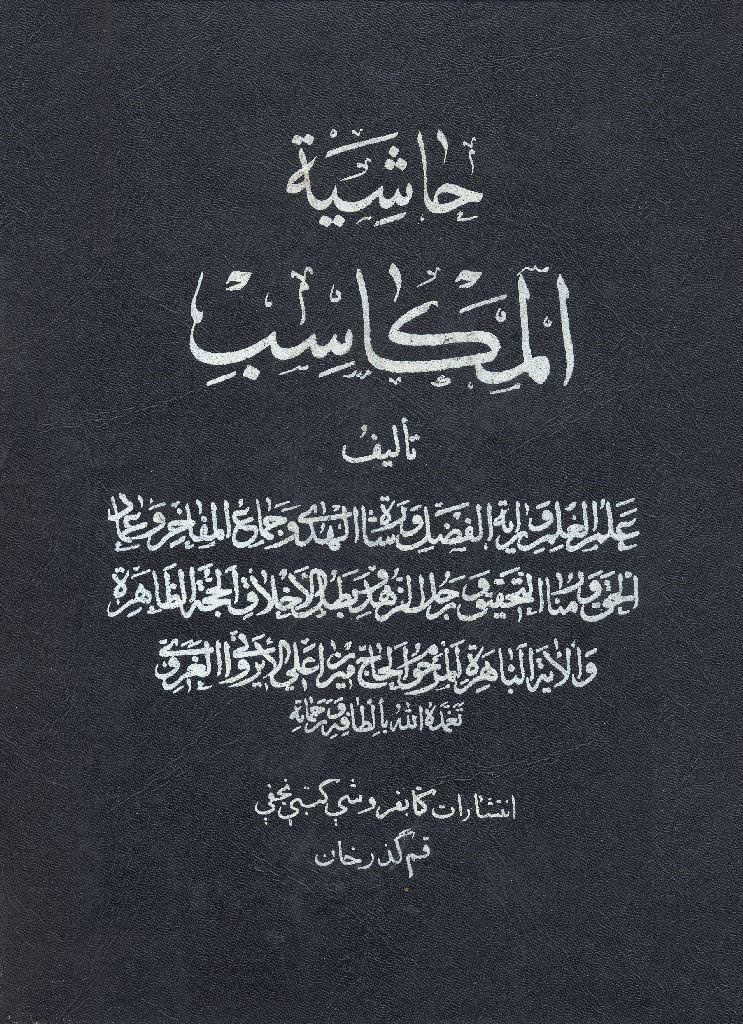 حاشية
المكاسب
تأليف
علم العلم وراية الفضل و الهدى وجماع المفاخر وعماد
الحق ومنار التحقيق ورجل الزهد وبطل الأخلاق الحجة الظاهرة
والآية الباهرة المرحوم الحاج ميرزا علي الايرواني الغروي
تغمده الله بألطافه ورحماته
انتشارات كتابفروشي كتبي نجفي
قم گذرخان